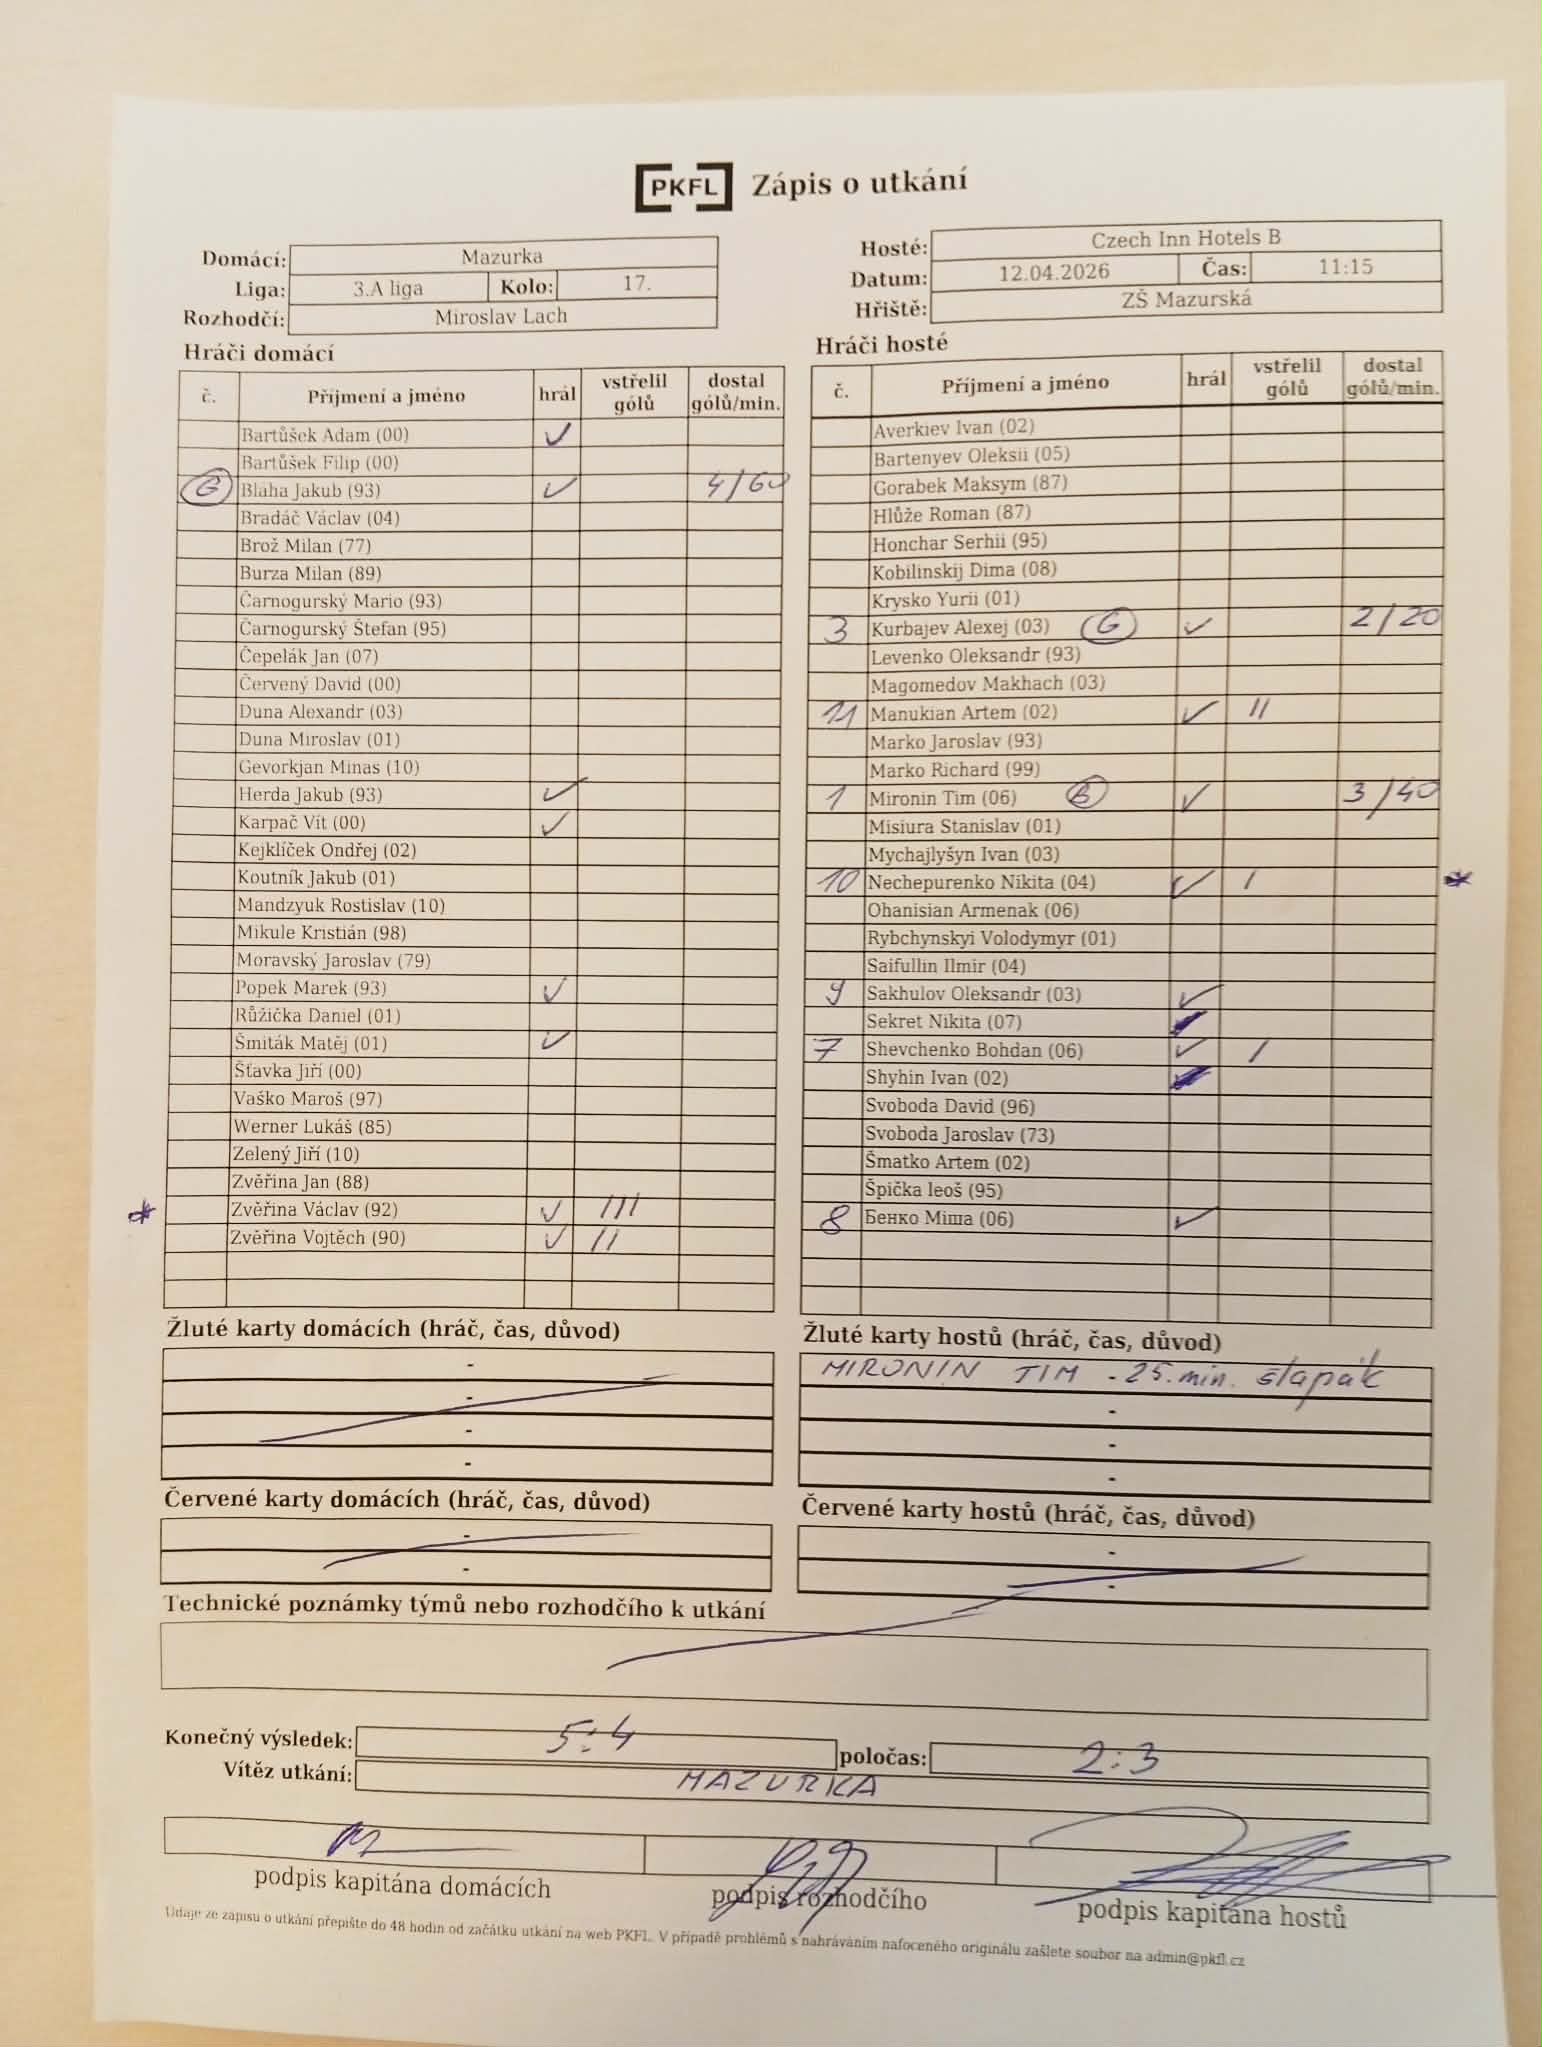 PKFL Zápis o utkání
Domácí: Mazurka
Liga: 3.A liga Kolo: 17.
Rozhodčí: Miroslav Lach
Hosté: Czech Inn Hotels B
Datum: 12.04.2026 Čas: 11:15
Hřiště: ZŠ Mazurská
Hráči domácí
č. Příjmení a jméno hrál vstřelil gólů dostal gólů/min.
Bartůšek Adam (00) ✓
Bartůšek Filip (00)
G Bláha Jakub (93) ✓ 4/60
Bradáč Václav (04)
Brož Milan (77)
Burza Milan (89)
Čarnogurský Mario (93)
Čarnogurský Štefan (95)
Čepelák Jan (07)
Červený David (00)
Duna Alexandr (03)
Duna Miroslav (01)
Gevorkjan Minas (10)
Herda Jakub (93) ✓
Karpač Vít (00) ✓
Kejklíček Ondřej (02)
Koutník Jakub (01)
Mandzyuk Rostislav (10)
Mikule Kristián (98)
Moravský Jaroslav (79)
Popek Marek (93) ✓
Růžička Daniel (01)
Šmiták Matěj (01) ✓
Šťavka Jiří (00)
Vaško Maroš (97)
Werner Lukáš (85)
Zelený Jiří (10)
Zvěřina Jan (88)
* Zvěřina Václav (92) ✓ III
Zvěřina Vojtěch (90) ✓ II
Hráči hosté
č. Příjmení a jméno hrál vstřelil gólů dostal gólů/min.
Averkiev Ivan (02)
Bartenyev Oleksii (05)
Gorabek Maksym (87)
Hlůže Roman (87)
Honchar Serhii (95)
Kobilinskij Dima (08)
Krysko Yurii (01)
3 Kurbajev Alexej (03) G ✓ 2/20
Levenko Oleksandr (93)
Magomedov Makhach (03)
11 Manukian Artem (02) ✓ II
Marko Jaroslav (93)
Marko Richard (99)
1 Mironin Tim (06) ✓ 3/40
Misiura Stanislav (01)
Mychajlyšyn Ivan (03)
10 Nechepurenko Nikita (04) ✓ I *
Ohanisian Armenak (06)
Rybchynskyi Volodymyr (01)
Saifullin Ilmir (04)
9 Sakhulov Oleksandr (03) ✓
Sekret Nikita (07)
7 Shevchenko Bohdan (06) ✓ I
Shyhin Ivan (02)
Svoboda David (96)
Svoboda Jaroslav (73)
Šmatko Artem (02)
Špička leoš (95)
8 Бенко Міша (06) ✓
Žluté karty domácích (hráč, čas, důvod)
-
-
-
-
Žluté karty hostů (hráč, čas, důvod)
MIRONIN TIM - 25. min. šlapák
-
-
-
Červené karty domácích (hráč, čas, důvod)
-
-
Červené karty hostů (hráč, čas, důvod)
-
-
Technické poznámky týmů nebo rozhodčího k utkání
Konečný výsledek: 5:4 poločas: 2:3
Vítěz utkání: MAZURKA
podpis kapitána domácích podpis rozhodčího podpis kapitána hostů
Údaje ze zápisu o utkání přepište do 48 hodin od začátku utkání na web PKFL. V případě problémů s nahráváním nafoceného originálu zašlete soubor na admin@pkfl.cz